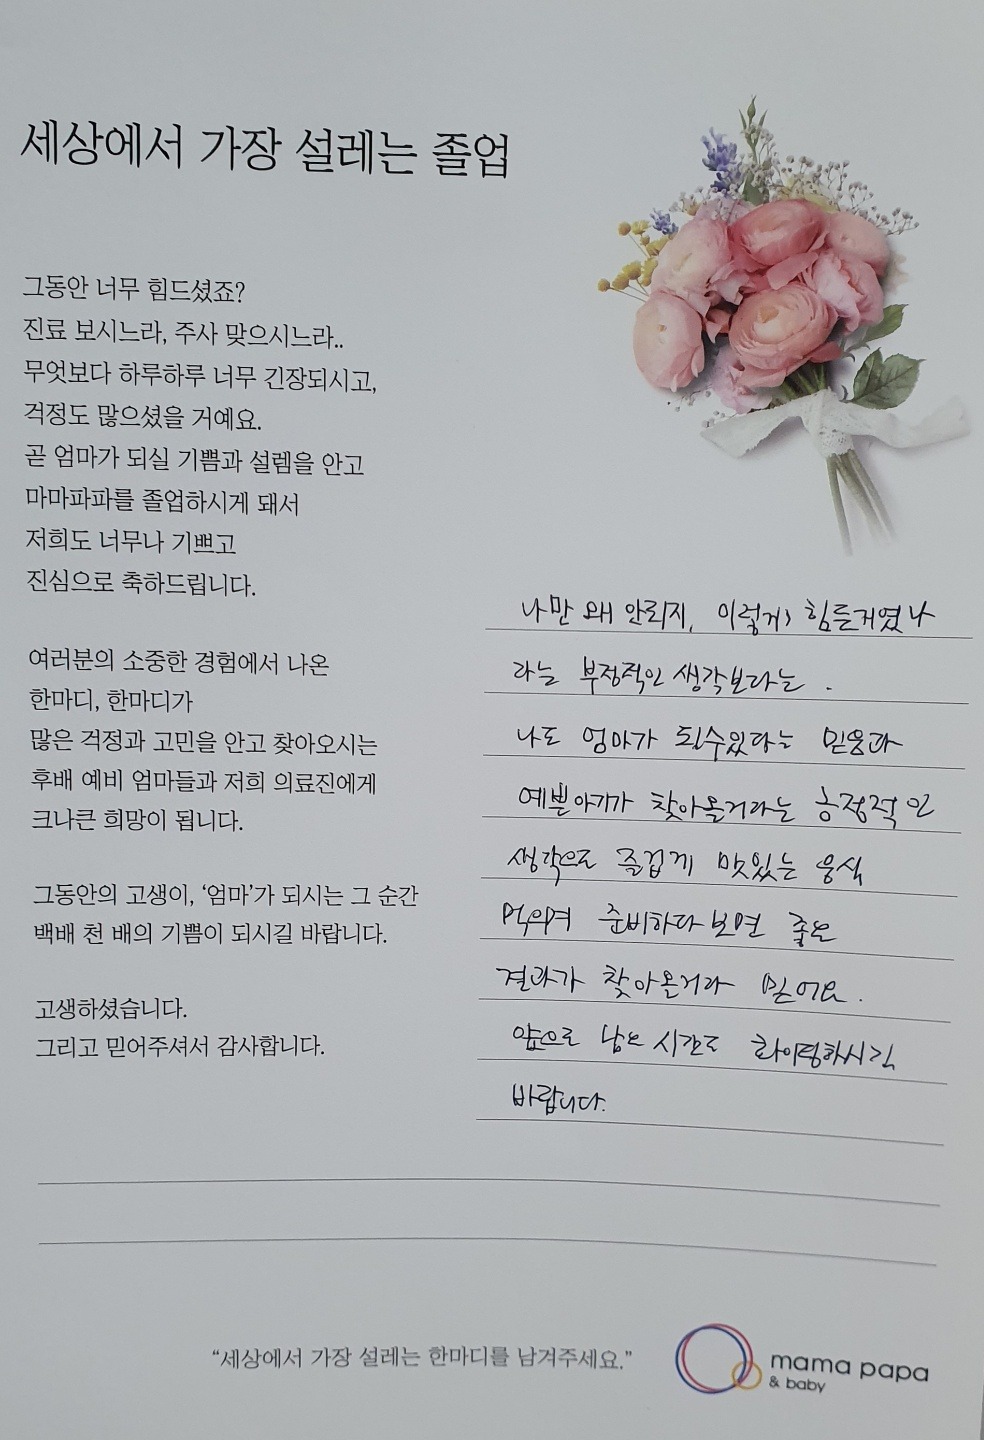 세상에서 가장 설레는 졸업
그동안 너무 힘드셨죠?
진료 보시느라, 주사 맞으시느라..
무엇보다 하루하루 너무 긴장되시고,
걱정도 많으셨을 거예요.
곧 엄마가 되실 기쁨과 설렘을 안고
마마파파를 졸업하시게 돼서
저희도 너무나 기쁘고
진심으로 축하드립니다.
여러분의 소중한 경험에서 나온
한마디, 한마디가
많은 걱정과 고민을 안고 찾아오시는
후배 예비 엄마들과 저희 의료진에게
크나큰 희망이 됩니다.
그동안의 고생이, ‘엄마’가 되시는 그 순간
백배 천 배의 기쁨이 되시길 바랍니다.
고생하셨습니다.
그리고 믿어주셔서 감사합니다.
나만 왜 안되지, 이렇게 힘든거였나
라는 부정적인 생각보다는 .
나도 엄마가 될수있다는 믿음과
예쁜아기가 찾아올거라는 긍정적인
생각으로 즐겁게 맛있는 음식
먹으며 준비하다보면 좋은
결과가 찾아올거라 믿어요.
앞으로 남은 시간도 화이팅하시길
바랍니다.
“세상에서 가장 설레는 한마디를 남겨주세요.”
mama papa
& baby